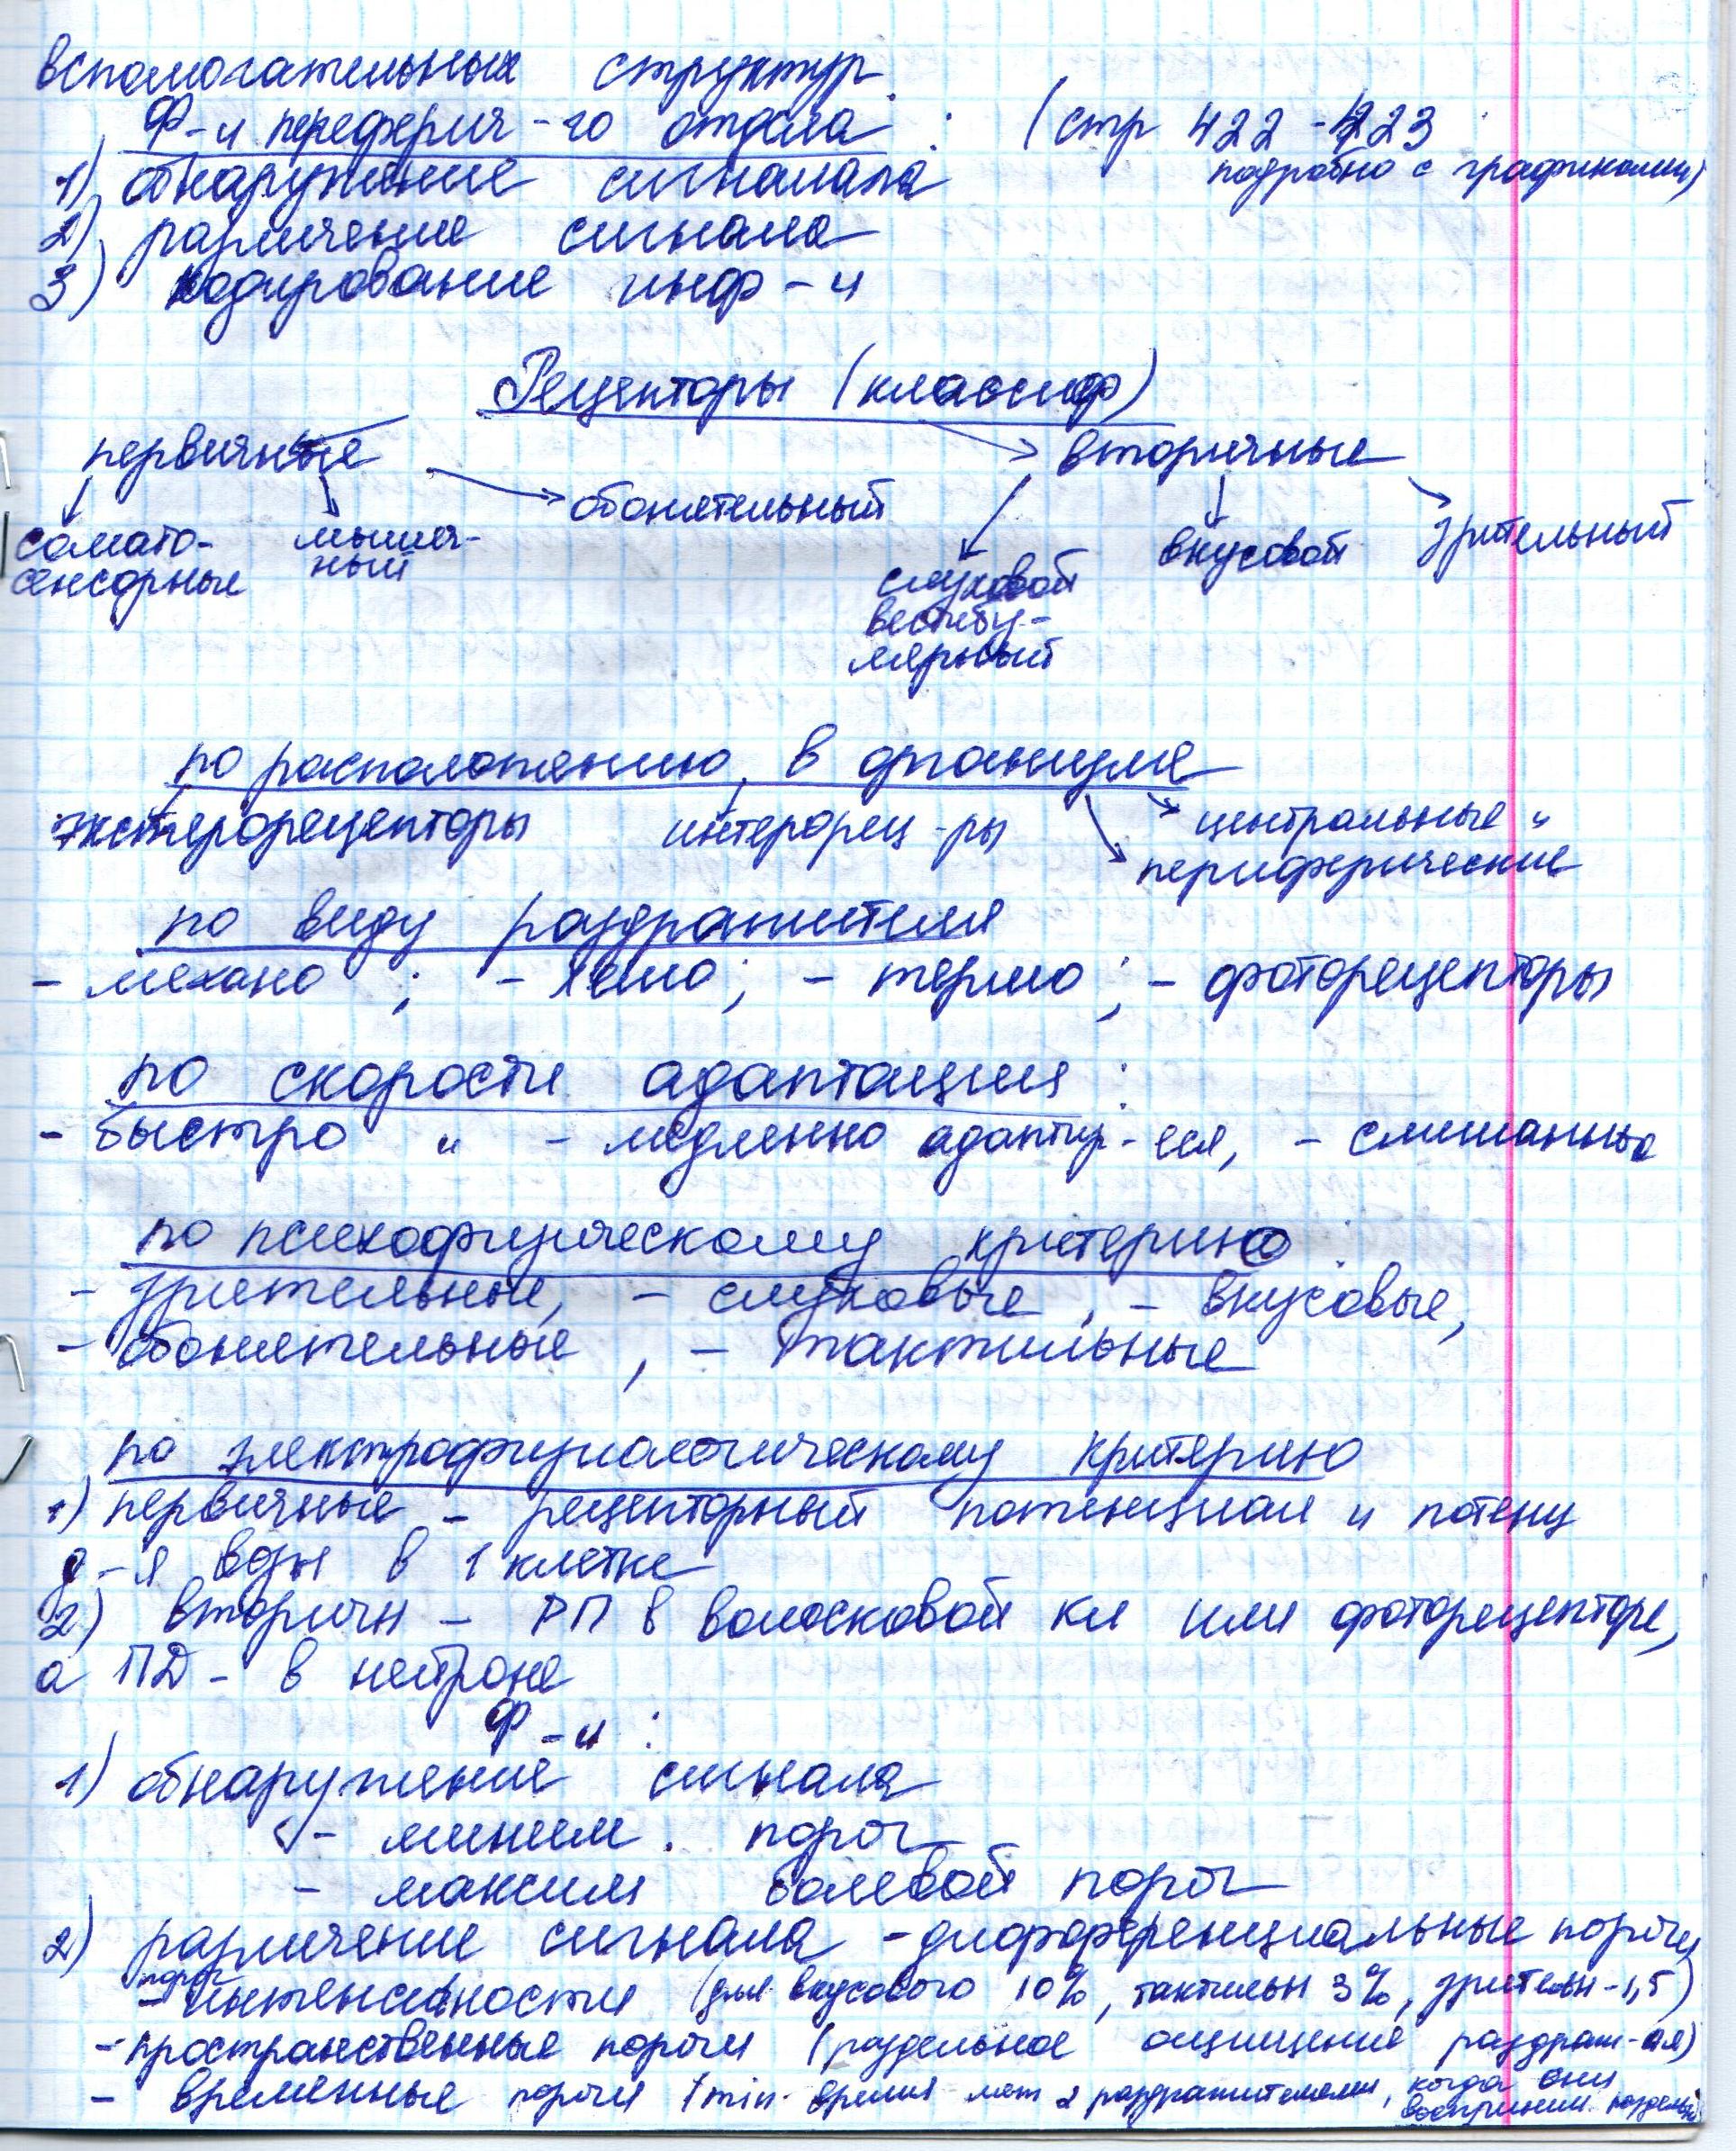 вспомогательных структур.
Ф-и переферич-го отдела : (стр 422-423
подробно с графиками)
1) обнаружение сигналала
2) различение сигнала
3) кодирование инф-и
Рецепторы (классиф)
первичные
вторичные
обонятельный
сомато-
сенсорные
мышеч-
ный
слуховой
вестибу-
лярный
вкусовой
зрительный
по расположению в организме
экстерорецепторы интерорец-ры
центральные и
периферические
по виду раздражителя
- механо ; - хемо ; - термо ; - фоторецепторы
по скорости адаптации :
- быстро и - медленно адаптир-еся, - смешанные
по психофизическому критерию :
- зрительные, - слуховые, - вкусовые,
- обонятельные, - тактильные
по электрофизиологическому критерию
1) первичные - рецепторный потенциал и потенц
д-я в 1 клетке
2) вторичн - РП в волосковой кл или фоторецепторе,
а ПД - в нейроне
Ф-и :
1) обнаружение сигнала
- миним. порог
- максим болевой порог
2) различение сигнала - дифференциальные пороги
порог
- интенсивности (для вкусового 10%, тактильн 3%, зрительн - 1,5)
- пространственные пороги (раздельное ощущение раздраж-ля)
- временные пороги (min. время меж 2 раздражителями, когда они
восприним. раздельн